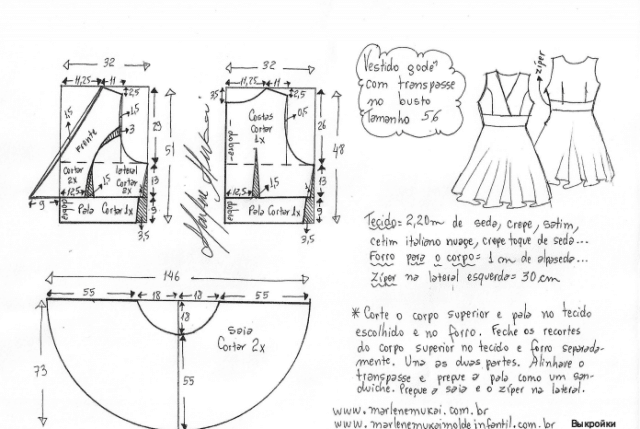 32
11,25
11
2,5
1,5
1,5
3
Frente
29
51
Cortar
2x
lateral
Cortar
2x
12,5
1,5
13
9
dobra
Pala Cortar 1x
9
3,5
Marlene Mukai
32
11,25
11
35
2,5
Costas
Cortar
1x
0,5
-dobra-
26
48
12,5
1,5
13
dobra
Pala Cortar 1x
9
3,5
Vestido godê
com transpasse
no busto
Tamanho 56
zíper
Tecido= 2,20m de seda, crepe, satim,
cetim italiano nuage, crepe toque de seda...
Forro para o corpo= 1 cm de alpaseda...
Zíper na lateral esquerda= 30 cm
* Corte o corpo superior e pala no tecido
escolhido e no forro. Feche os recortes
do corpo superior no tecido e forro separada-
mente. Una as duas partes. Alinhave o
transpasse e pregue a pala como um san-
duíche. Pregue a saia e o zíper na lateral.
146
55
18
18
55
18
Saia
Cortar 2x
73
55
www.marlenemukai.com.br
www.marlenemukaimoldeinfantil.com.br
Выкройки